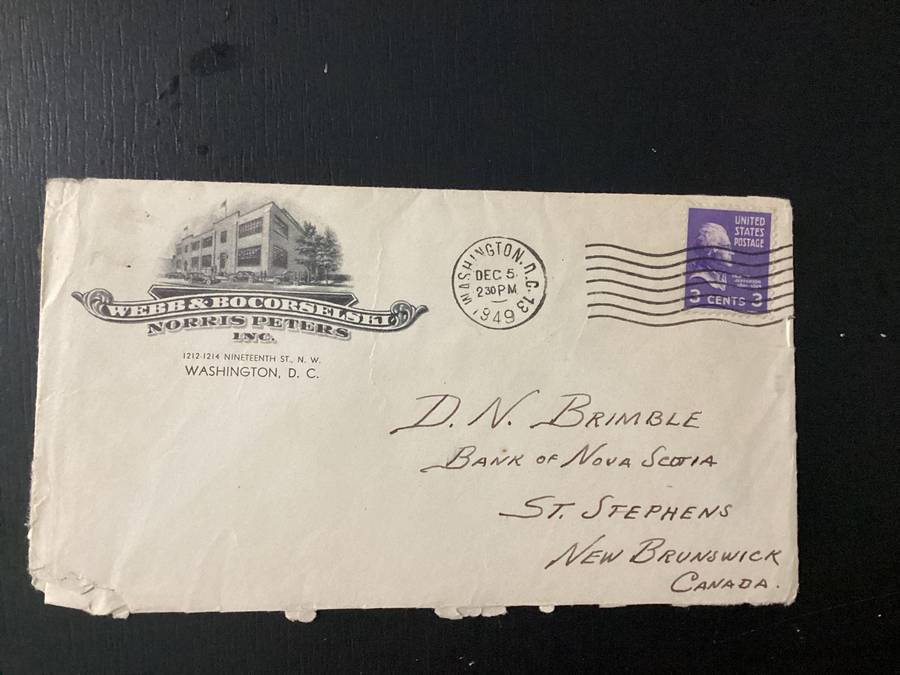 WEBB & BOCORSELSKI
NORRIS PETERS
INC.
1212-1214 NINETEENTH ST., N. W.
WASHINGTON, D. C.
WASHINGTON, D.C. 13
DEC 5
2 30 PM
1949
UNITED
STATES
POSTAGE
JEFFERSON
3 CENTS 3
D. N. BRIMBLE
BANK OF NOVA SCOTIA
ST. STEPHENS
NEW BRUNSWICK
CANADA.